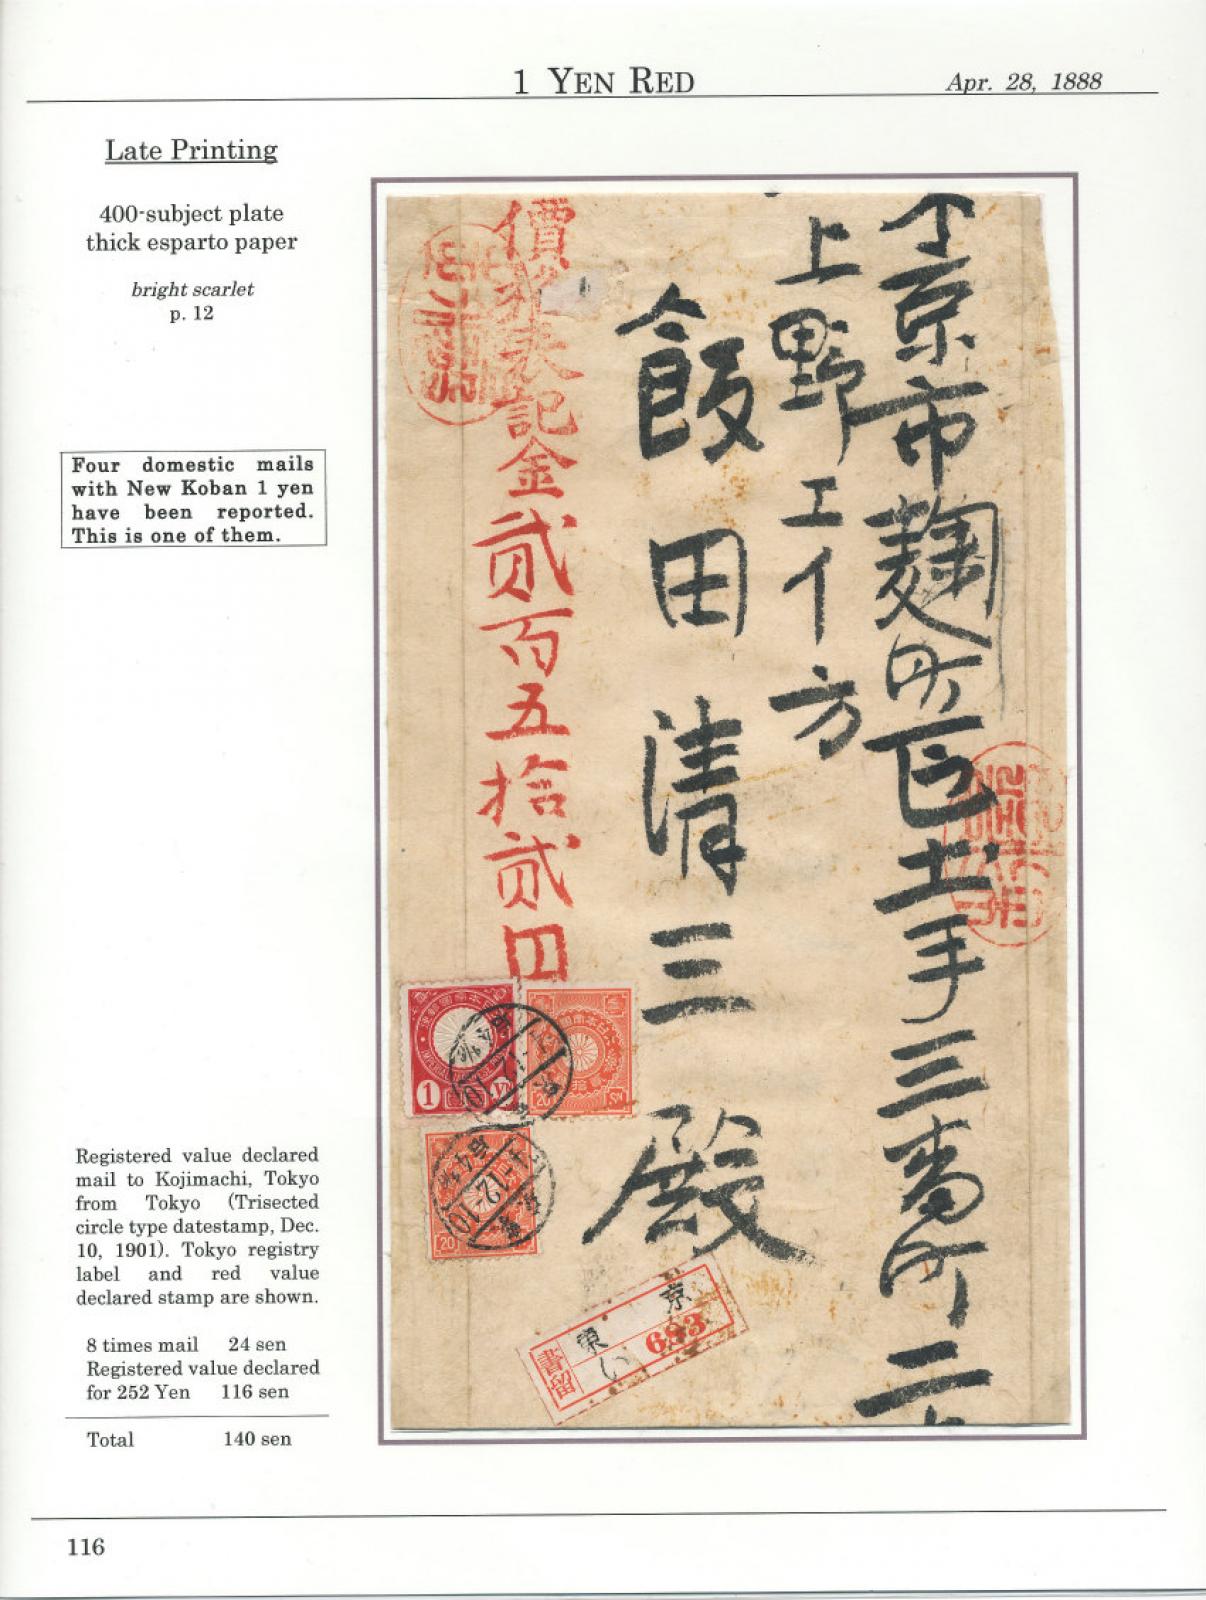 1 YEN RED
Apr. 28, 1888
Late Printing
400-subject plate
thick esparto paper
bright scarlet
p. 12
Four domestic mails
with New Koban 1 yen
have been reported.
This is one of them.
Registered value declared
mail to Kojimachi, Tokyo
from Tokyo (Trisected
circle type datestamp, Dec.
10, 1901). Tokyo registry
label and red value
declared stamp are shown.
8 times mail 24 sen
Registered value declared
for 252 Yen 116 sen
Total 140 sen
116
京市麹町区土手三番町二
上野エイ方
飯田清三殿
價格表記金貳百五拾貳円
1
20
SN
20
4-12-10
書留
東京
い
683